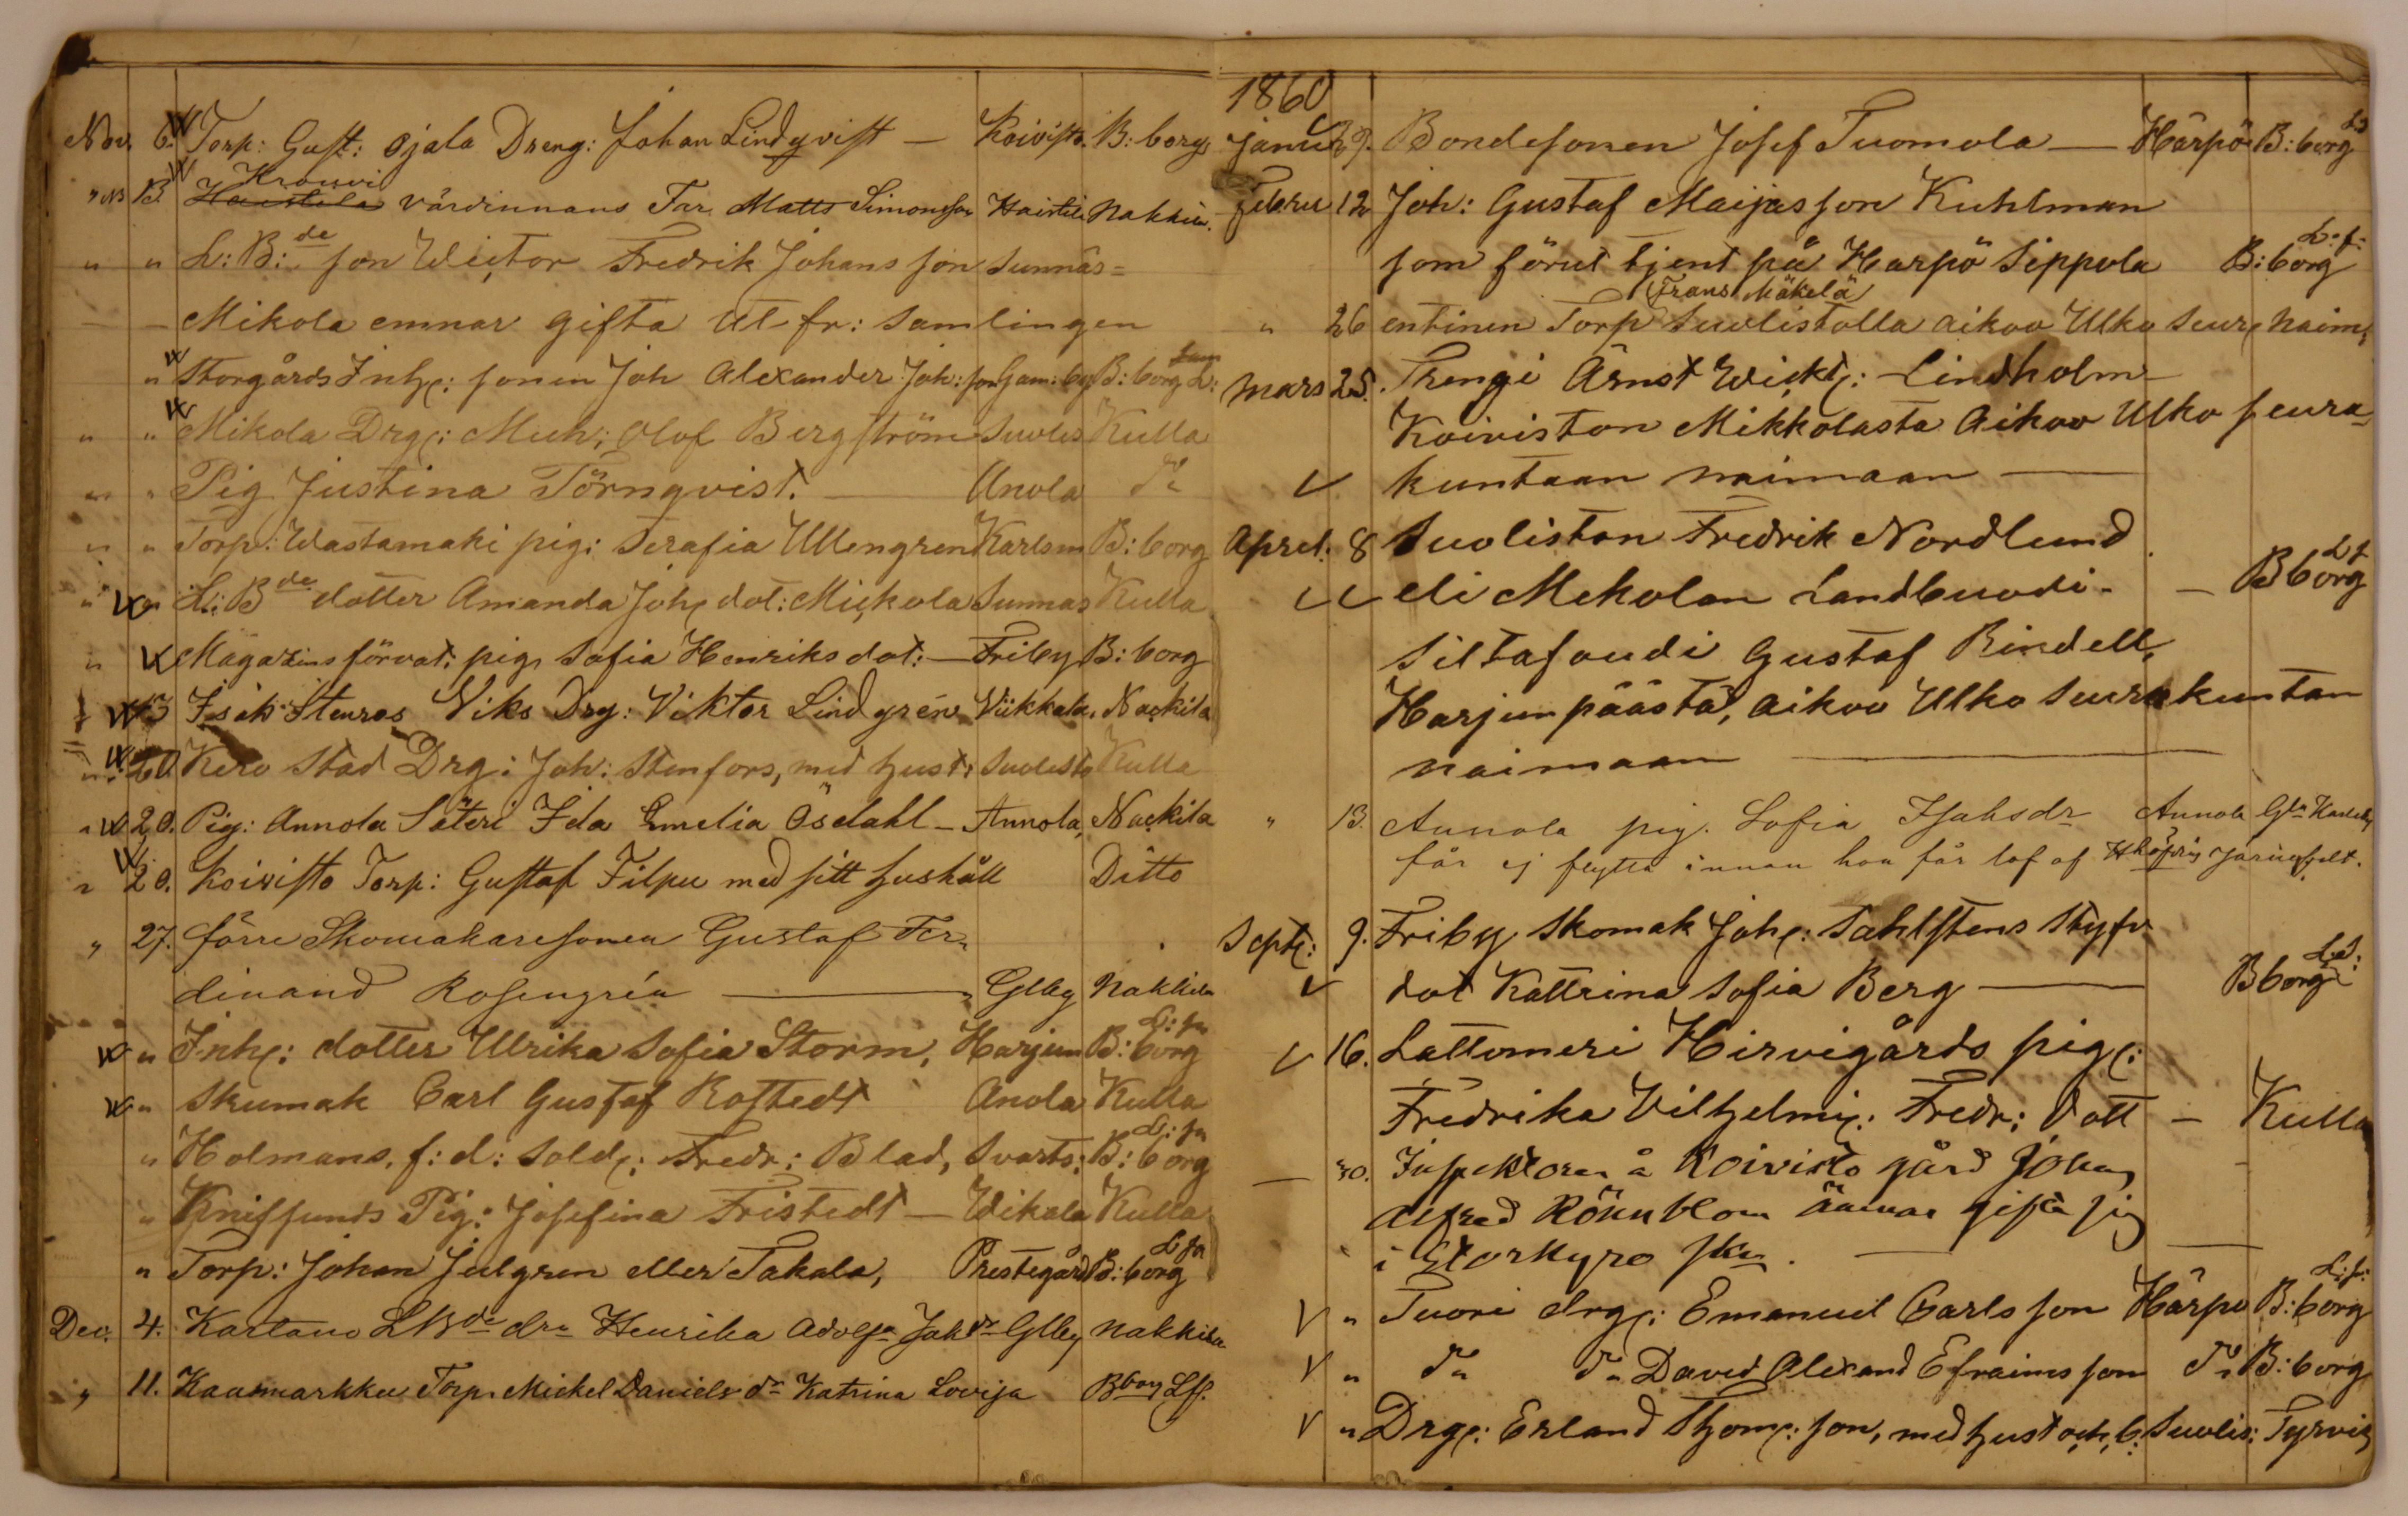 Nov. 6. Torp: Gust: Ojala Dreng: Johan Lindqvist — Koivisto. B:borg
Krouvi
" 13. Haistila värdinnans Far Matts Simonsson Haistila Nakkila.
" " L: B:de son Wictor Fredrik Johansson Sunnäs=
— — Mikola emnar gifta ut fr: Samlingen
" Storgårds Inhs: sonen Joh Alexander Joh:son Gam:by B:borg L:
" " Mikola Drgs: Mich: Olof Bergström Suolis Kulla
" " Pig Justina Törnqvist. — Anola Do
" " Torp: Wastamaki pig: Serafia Ullengren Karlsm B:borg
" " L: Bde dotter Amanda Johs dot: Mickola Sunnas Kulla
" Magazinsförvat: pigs Sofia Henriksdot: — Friby B:borg
13 Isak Stenros Viks Drg: Viktor Lindgrén Viikkala, Nackila
" 20. Kero Stad Drg: Joh: Stenfors, med hust: Suolisto Kulla
" 20. Pig: Annola Säteri Ida Emelia Ösdahl — Annola, Nackila
" 20. Koivisto Torp: Gustaf Filpu med sitt hushåll Ditto
" 27. förre Skomakaresonen Gustaf Fer=
dinand Rosengrén — Glby Nakkila
" Inhs: dotter Ulrika Sofia Storm, Harjun B:borg L:fs
" Skumak Carl Gustaf Rostedt Anola Kulla
" Holmans, f:d: Solds: Fredr: Blad, Svarts: B:borg L:fs
" Knifsunds Pig: Josefina Fristedt — Wikala Kulla
" Torp: Johan Julgren eller Takala, Prestegård B:borg L fs
Dec. 4. Kartano LBde dr Henrika Adolfa Jakdr Glby Nakkila
" 11. Kaasmarkku Torp. Mickel Daniels dr Katrina Lovisa Bborg Lfs.
1860
Janu 29. Bondesonen Josef Tuomola — Härpö B:borg Ls
Febru 12 Joh: Gustaf Maijasson Kuhlman
som förut tjent på Harpö Sippola B:borg L:f:
Frans Mäkelä
" 26 entinen Torp Suolistolla aikoo Ulko Seurs naim,
Mars 25. Trengi Ärnst Wickts: Lindholm
Koiviston Mikkolasta Aikoo Ulko seura=
kuntaan naimaan —
Aprel. 8 Suoliston Fredrik Nordlund
eli Mekolan Landbuodi — Bborg Lf
Siltafoudi Gustaf Rindell,
Harjunpäästä, aikoo Ulko Seurakuntan
naimaan —
" 13. Annola pig. Sofia Isaksdr Annola Gla Karleby
får ej flytta innan hon får lof af
Septs: 9. Friby Skomak Johs: Sahlstens Styfv
dot Kattrina Sofia Berg — Bborg Ls:
16. Lattomeri Hirvigårds pigs:
Fredrika Vilhjelmis: Fredr: Dott — Kulla
— 30. Inspektoren å Koivisto gård Johan
Alfred Rönnblom ämnar gifta sig
i Storkyro skn. —
" Tuori drgs: Emanuel Carlsson Härpo B:borg L:f:
" Do Do David Alexand Efraimsson Do B:borg
" Drgs: Erland Thoms:son, med hust och 6: Suolis: Tyrvis